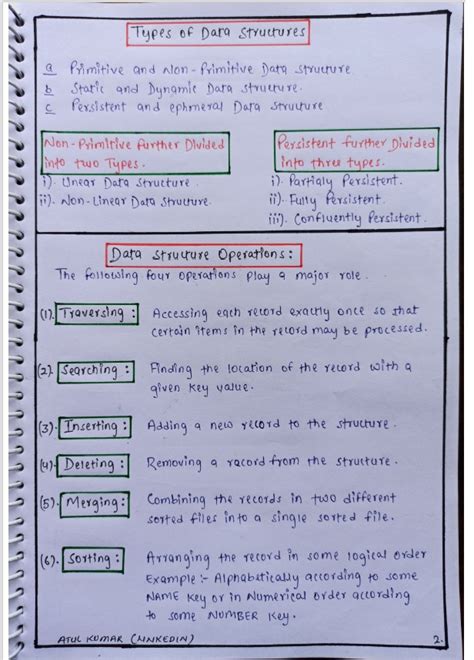 Types of Data Structures
a Primitive and Non-Primitive Data structure
b Static and Dynamic Data structure.
c Persistent and ephmeral Data Structure
Non-Primitive further Divided
into two Types.
i). Linear Data Structure.
ii). Non-Linear Data Structure.
Persistent further Divided
into three types.
i). Partialy Persistent.
ii). Fully Persistent.
iii). Confluently Persistent.
Data Structure Operations:
The following four operations play a major role.
(1). Traversing: Accessing each record exactly once so that
certain items in the record may be processed.
(2). Searching: Finding the location of the record with a
given key value.
(3). Inserting: Adding a new record to the structure.
(4). Deleting: Removing a racord from the structure.
(5). Merging: Combining the records in two different
sorted files into a single sorted file.
(6). Sorting: Arranging the record in some logical order
Example:- Alphabetically according to some
NAME key or in Numerical order according
to some NUMBER key.
ATUL KUMAR (LINKEDIN) 2.